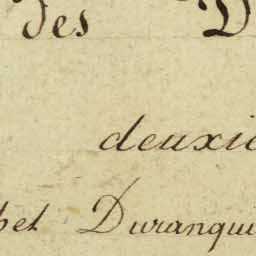 des D
deuxi
bet Duranqui